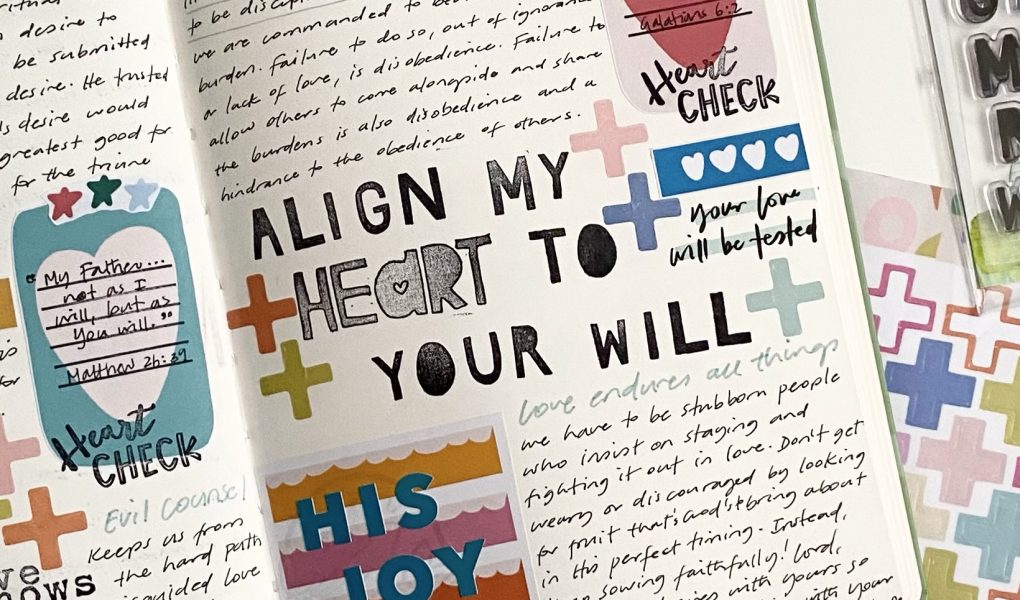 desire to
be submitted
desire. He trusted
desire would
greatest good for
for the triune
"My Father...
not as I
will, but as
you will."
Matthew 26:39
Heart
CHECK
Evil counsel
keeps us from
the hard path
love
to be
we are commanded to
burden. Failure to do so, out of ignorance
or lack of love, is disobedience. Failure to
allow others to come alongside and share
the burdens is also disobedience and a
hindrance to the obedience of others.
Galatians 6:2
Heart
CHECK
ALIGN MY
HEART TO
YOUR WILL
your love
will be tested
love endures all things
we have to be stubborn people
who insist on staying and
fighting it out in love. Don't get
weary or discouraged by looking
for fruit that's God's to bring about
in his perfect timing. Instead,
keep sowing faithfully! Lord,
with yours so
with your
HIS
JOY